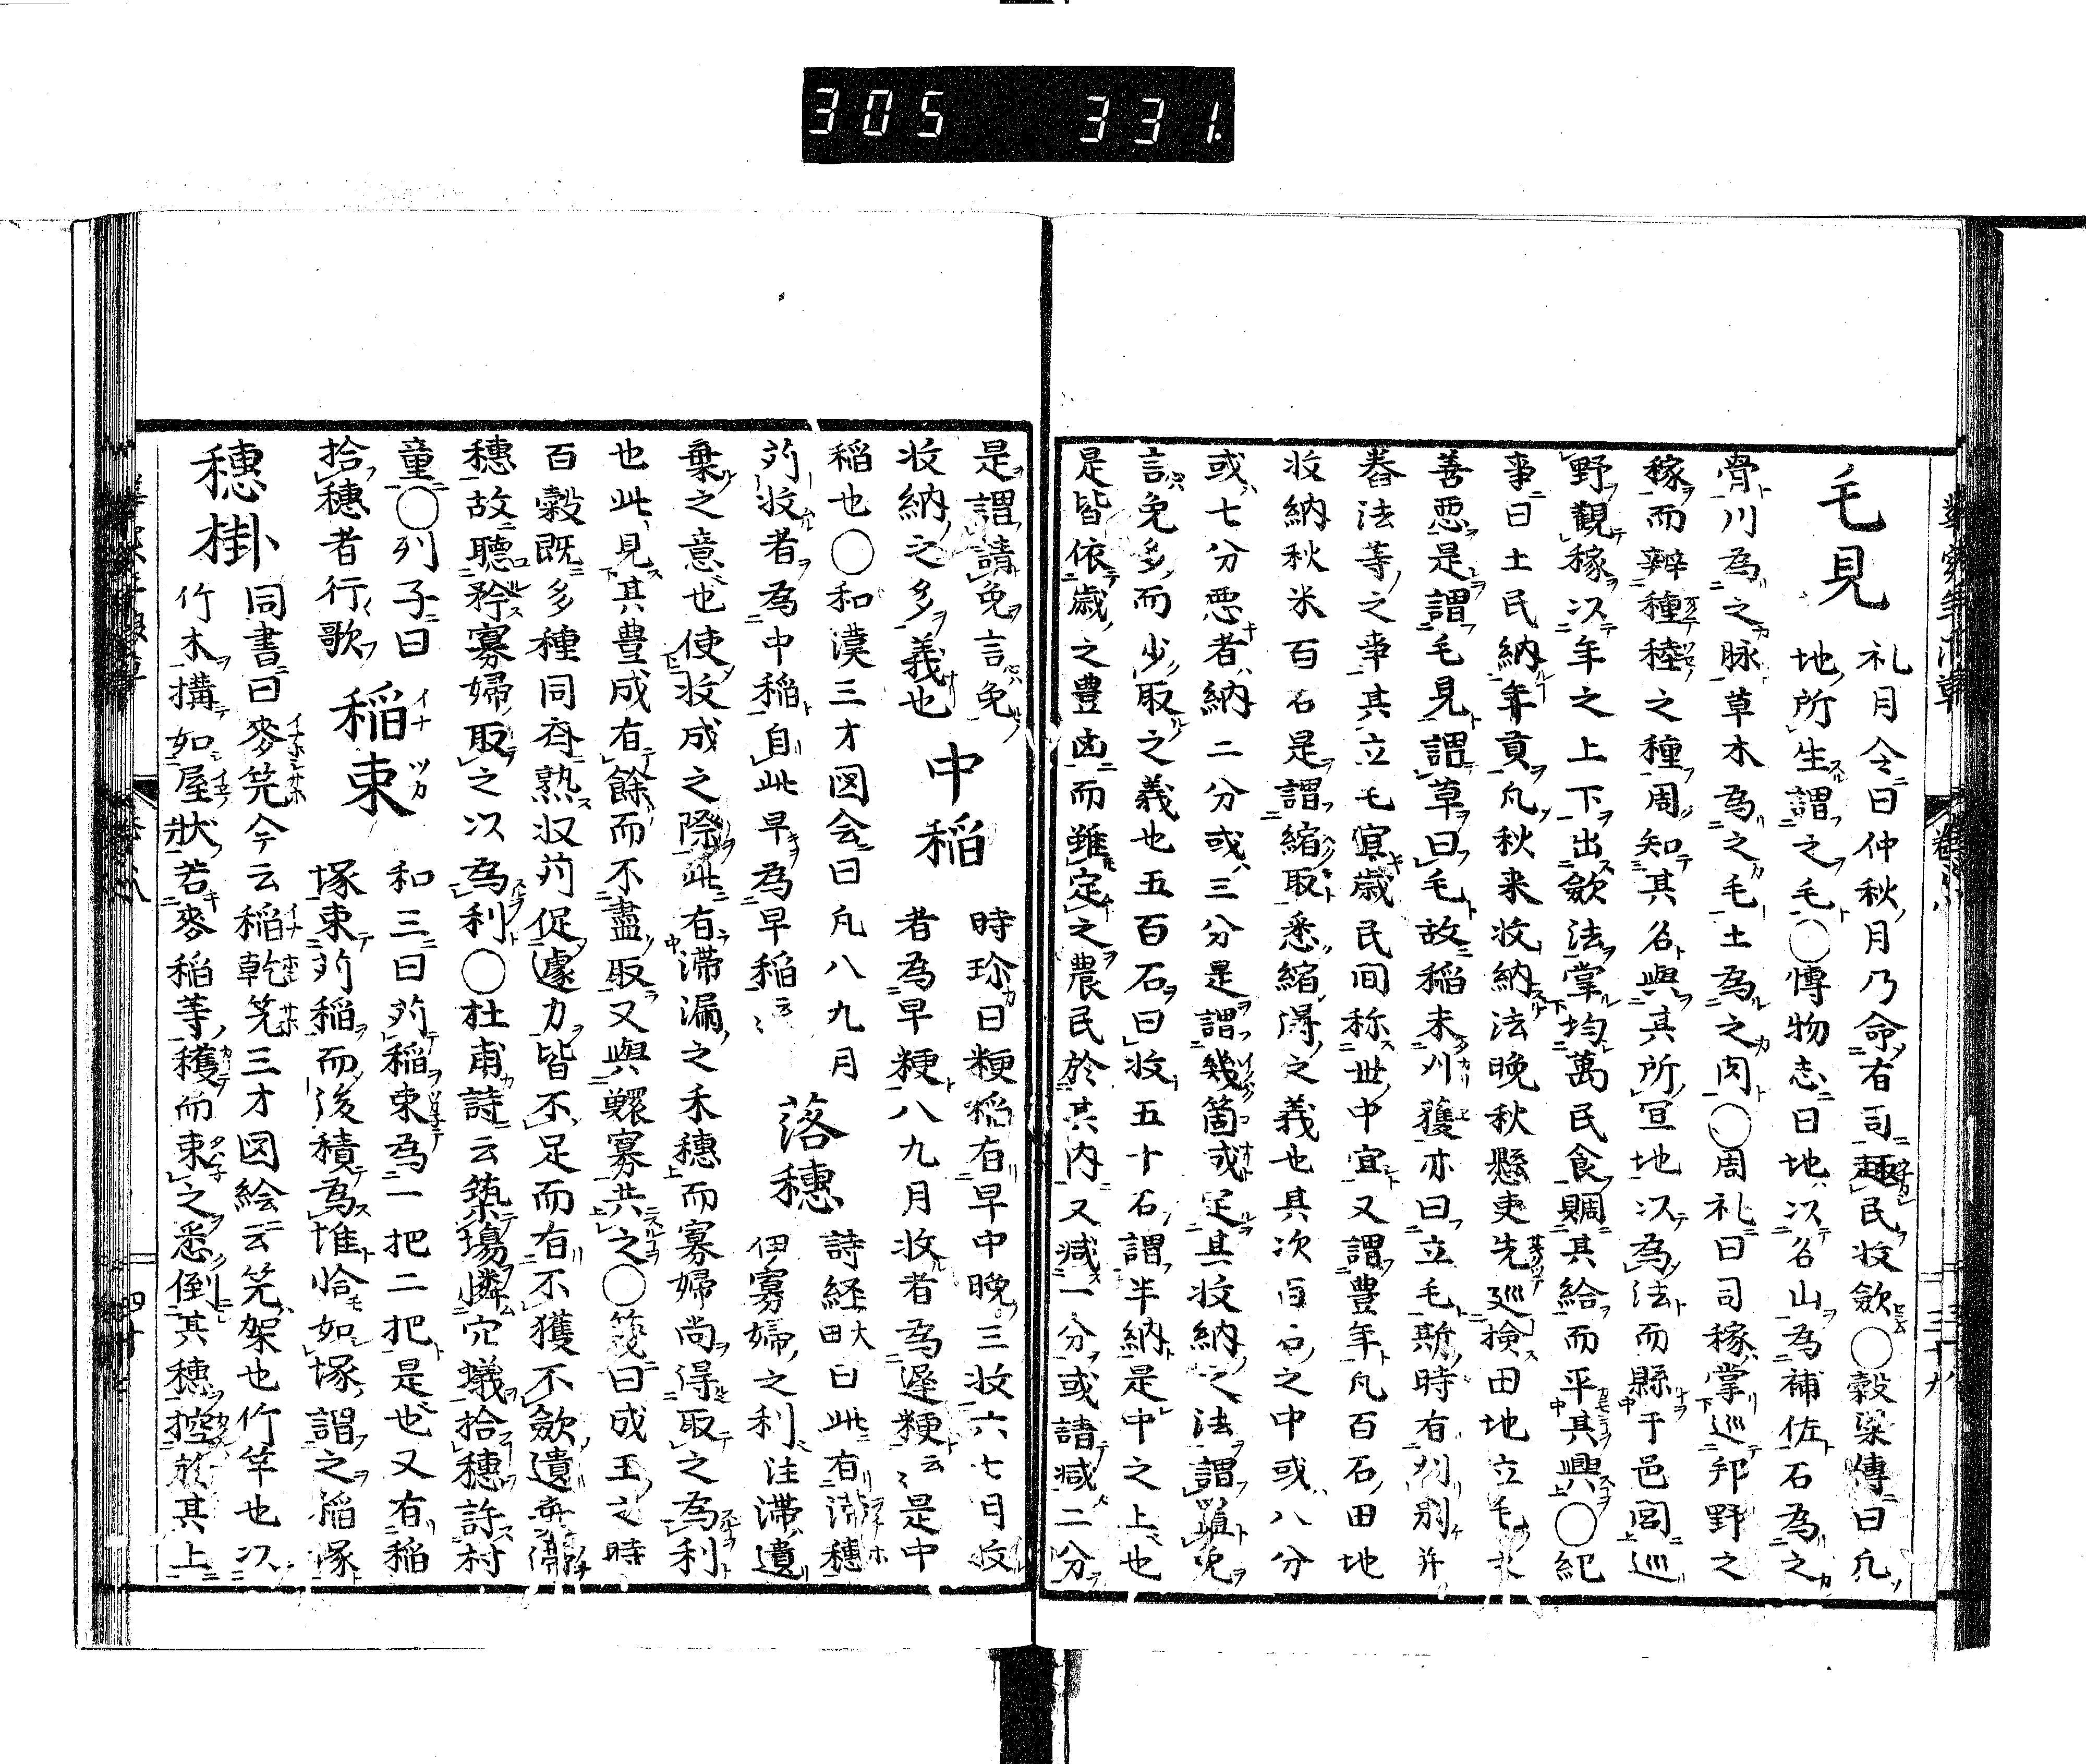 305 331.
毛見
礼月令曰仲秋月乃命有司趣民收斂〇穀梁傳曰凡
地所生謂之毛〇博物志曰地以名山為補佐石為之
骨川為之脉草木為之毛土為之肉〇周礼曰司稼掌巡邦野之
稼而辨穜稑之種周知其名與其所宜地以為法而縣于邑閭巡
野觀稼以年之上下出斂法掌均萬民食賙其給而平其興〇紀
事曰土民納年貢凡秋来收納法晚秋懸吏先巡検田地立毛
善惡是謂毛見謂草曰毛故稲未刈獲亦曰立毛斯時有別并
舂法等之事其立毛宜歳民间称世中宜又謂豊年凡百石田地
收納秋米百石是謂縮取悉縮得之義也其次百石之中或八分
或七分悪者納二分或三分是謂幾箇或定其收納之法謂請免
言免多而少取之義也五百石曰收五十石謂半納是中之上也
是皆依歳之豊凶而雖定之農民於其内又減一分或請減二分
是謂請免言免
收納之多義也
中稲
時珍曰粳稲有早中晩三收六七月收
者為早粳八九月收者為遲粳云〻是中
稲也〇和漢三才図会曰凡八九月
刈收者為中稲自此早為早稲云〻
落穂
詩経大田曰此有滞穂
伊寡婦之利注滞遺
棄之意也使收成之際此有滞漏之禾穂而寡婦尚得取之為利
也此見其豊成有餘而不盡取又與鰥寡共之〇箋曰成王之時
百穀既多種同斉熟收苅促遽力皆不足而有不獲不斂遺秉滞
穂故聽矜寡婦取之以為利〇杜甫詩云築場憐穴蟻拾穂許村
童〇列子曰
拾穂者行歌
稲束
和三曰刈稲束為一把二把是也又有稲
塚束刈稲而後積為堆恰如塚謂之稲塚
穂掛
同書曰麥笐今云稲乾笐三才図絵云笐架也竹竿也以
竹木搆如屋状若麥稲等穫而束之悉倒其穂控於其上